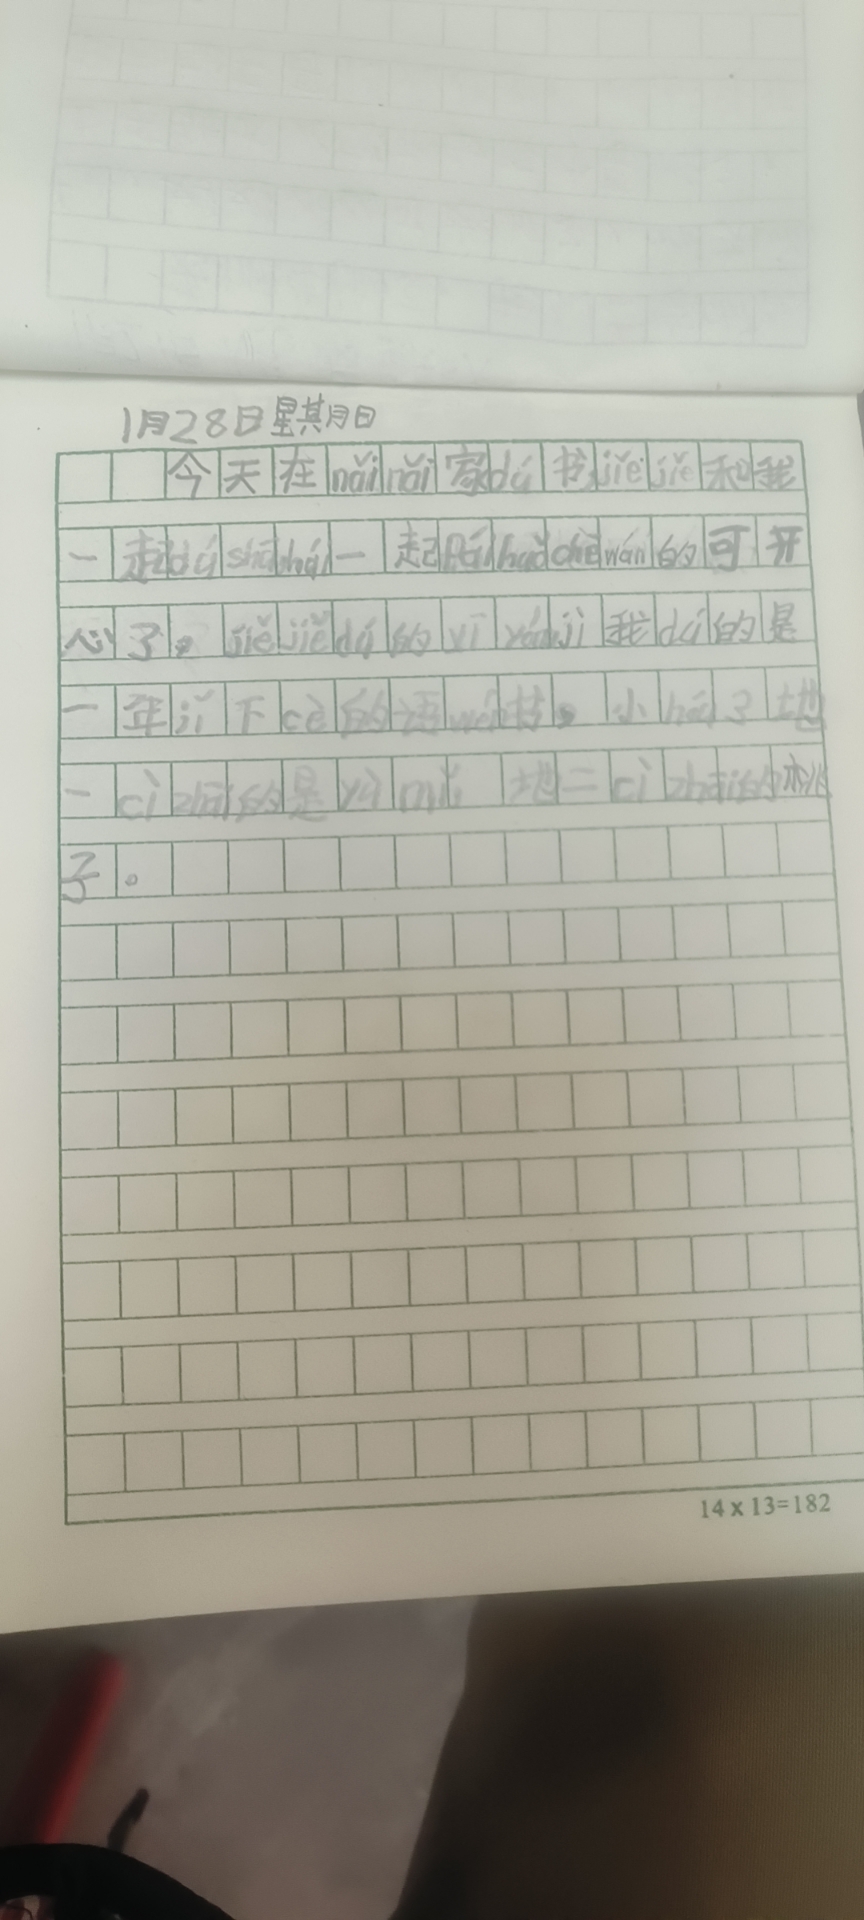 1月28日星其月日
今天在nǎinǎi家dú书jiějiě和我
一起dú shū hái一起pái huǒ chē wán的可开
心了。jiějiě dú的yī yán jì我dú的是
一年jí下cè的语wén书。小hái了地
一cì zhāi的是yù mǐ 地二cì zhāi的桃
子。
14x13=182